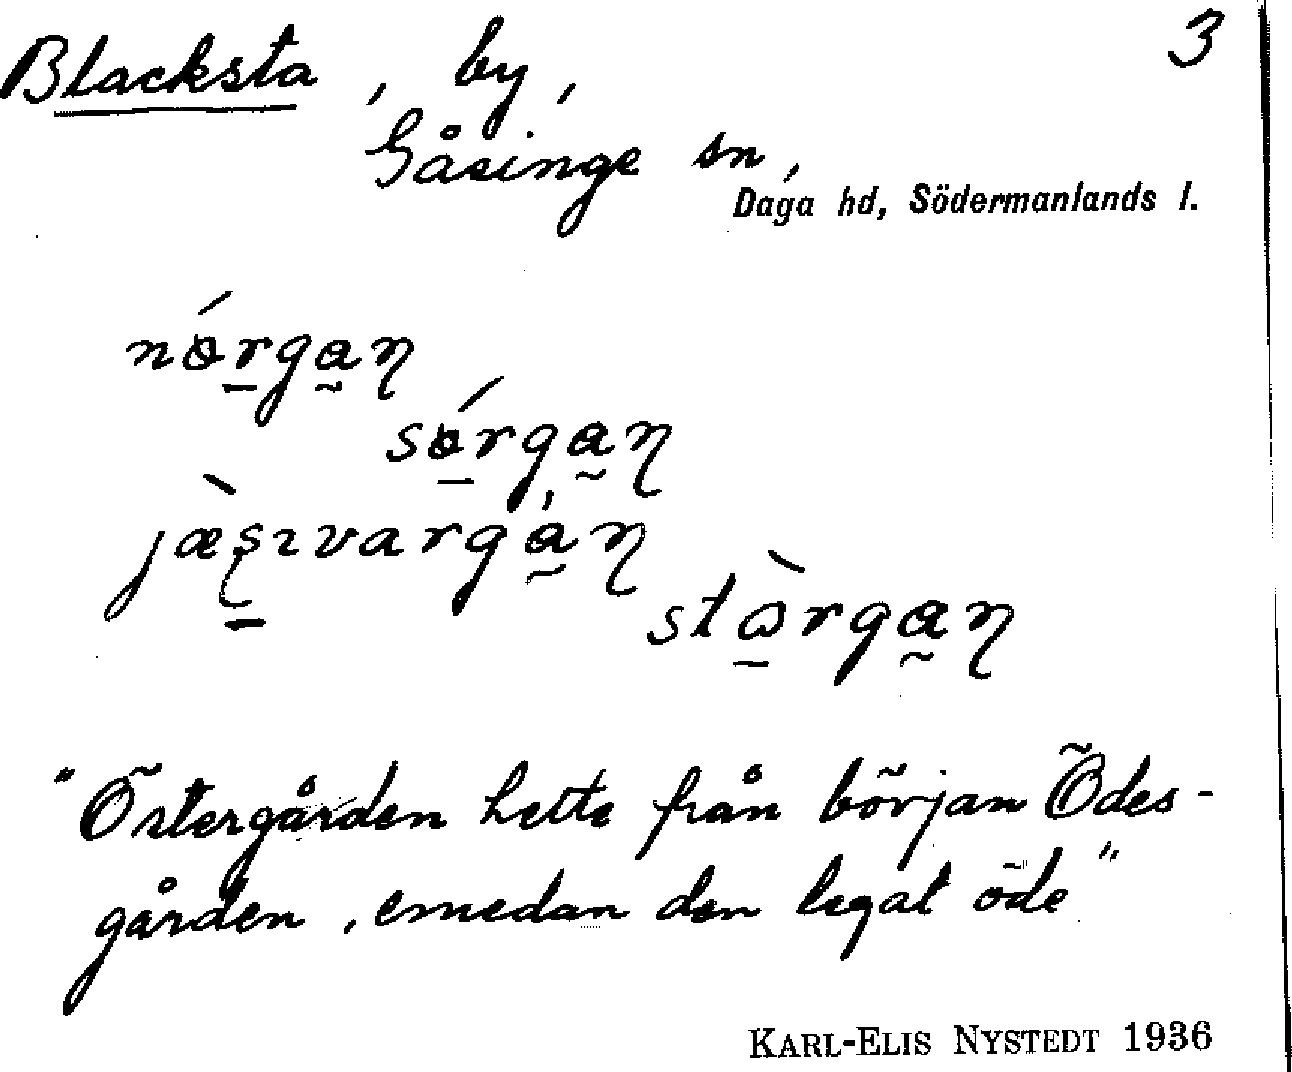 Blacksta, by, 3
Gåsinge sn,
Daga hd, Södermanlands l.
"Östergården hette från början Ödes-
gården, emedan den legat öde"
KARL-ELIS NYSTEDT 1936